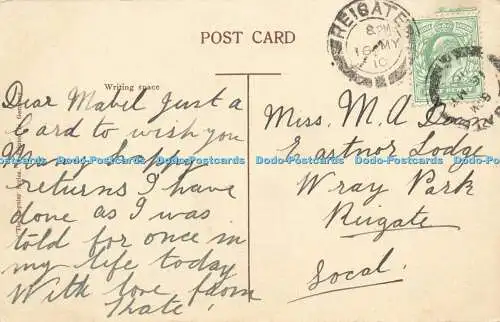 POST CARD
REIGATE
8 PM
16 MY
10
Writing space
Dear Mabel Just a
Card to wish you
Many happy
returns I have
done as I was
told for once in
my life today
With love from
Kate.
Miss. M. A
Eastnor Lodge
Wray Park
Reigate
Local.
Dodo-Postcards Dodo-Postcards Dodo-Postcards Dodo-Postcards Dodo-Postcards Dodo-Postcards